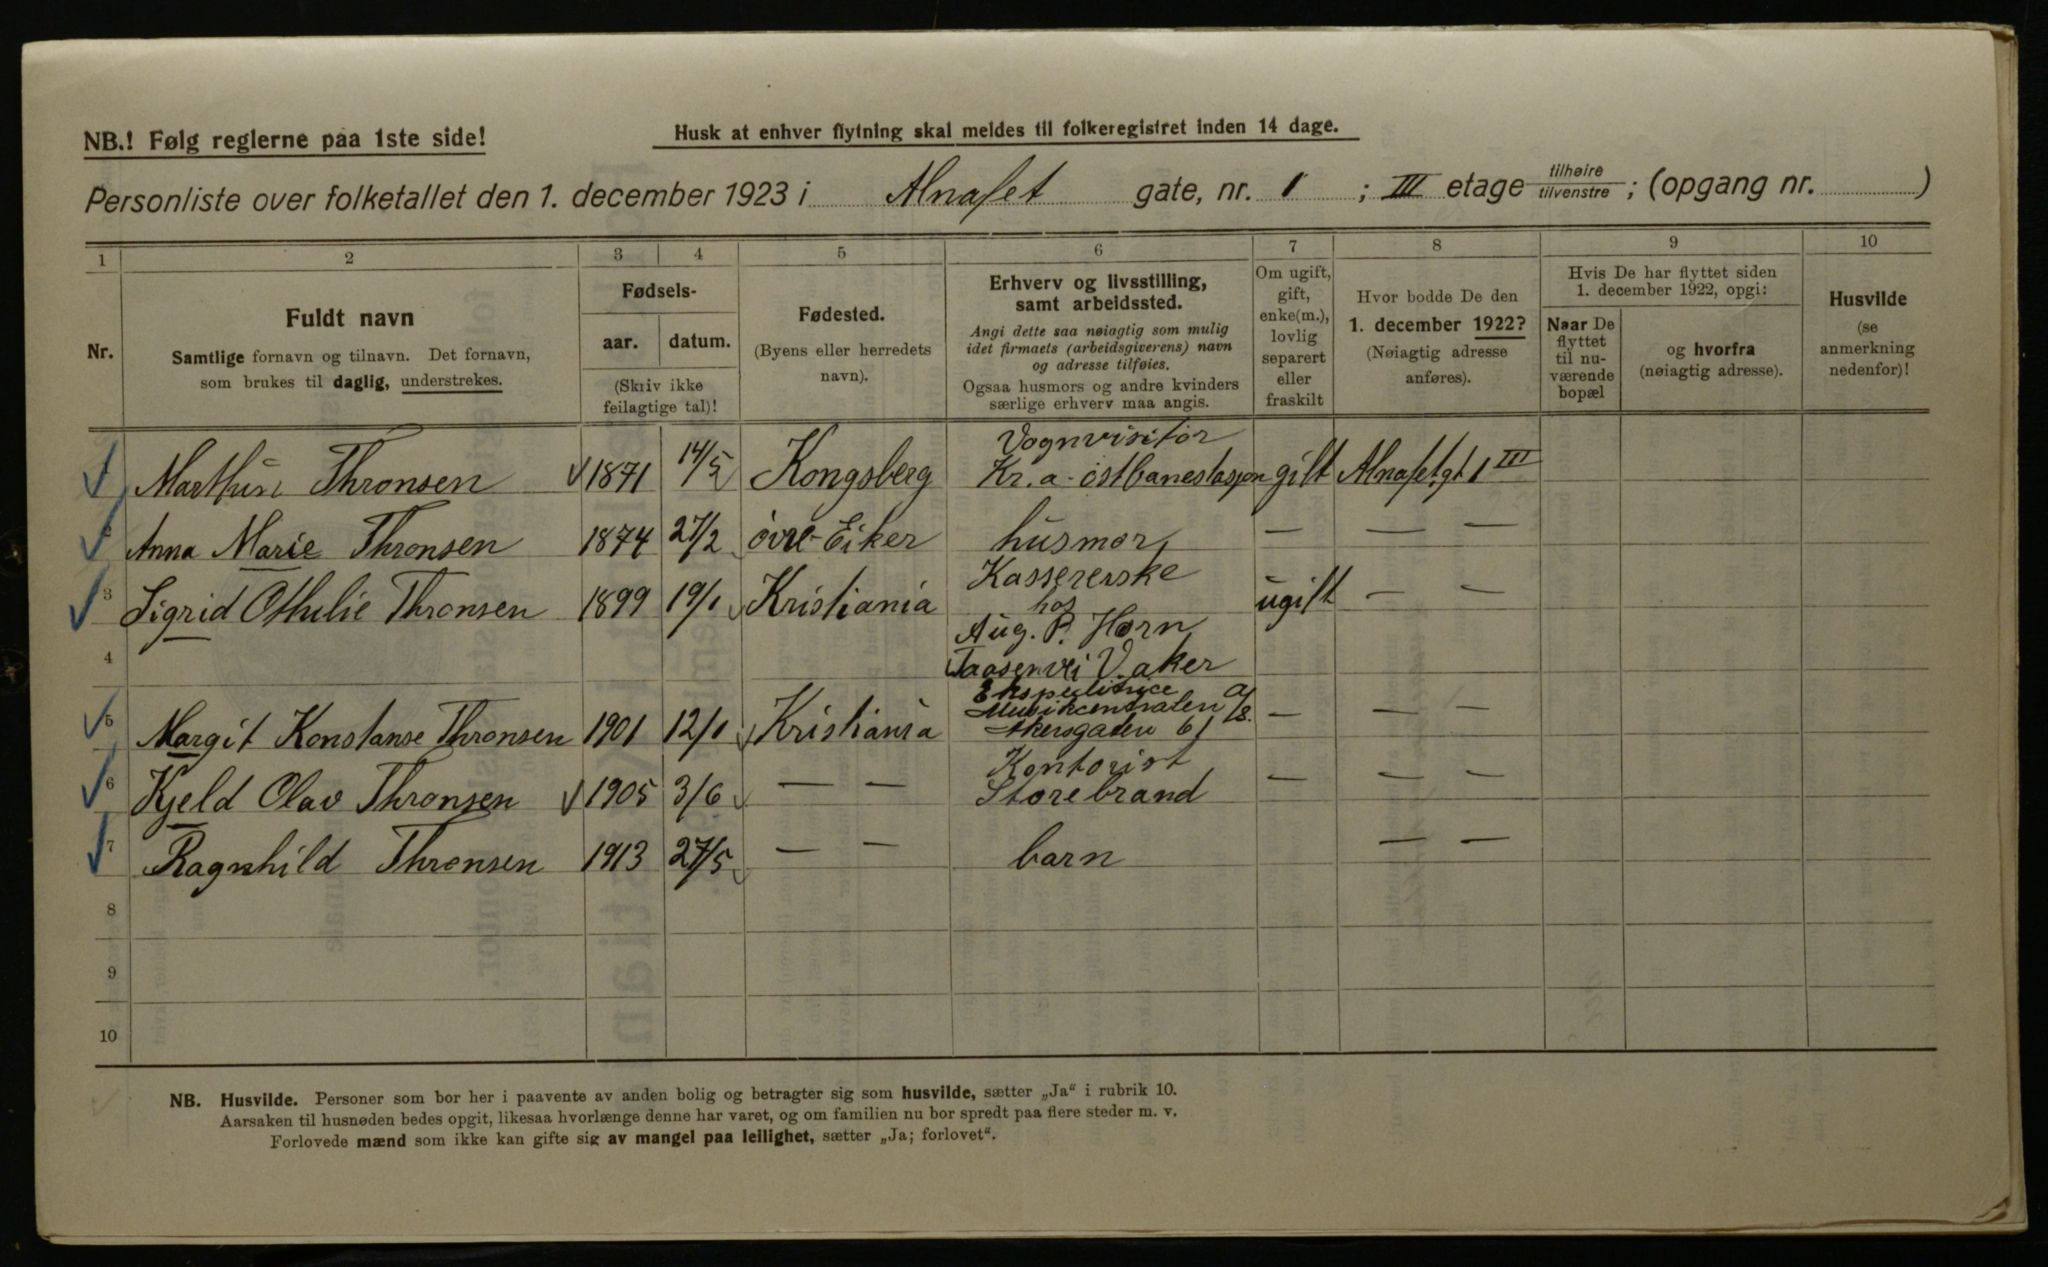 NB.! Følg reglerne paa 1ste side!
Husk at enhver flytning skal meldes til folkeregistret inden 14 dage.
Personliste over folketallet den 1. december 1923 i Alnafet gate, nr. 1 ; III etage tilhøire tilvenstre ; (opgang nr. )
1 2 3 4 5 6 7 8 9 10
Nr.
Fuldt navn
Samtlige fornavn og tilnavn. Det fornavn,
som brukes til daglig, understrekes.
Fødsels-
aar. datum.
(Skriv ikke
feilagtige tal)!
Fødested.
(Byens eller herredets
navn).
Erhverv og livsstilling,
samt arbeidssted.
Angi dette saa nøiagtig som mulig
idet firmaets (arbeidsgiverens) navn
og adresse tilføies.
Ogsaa husmors og andre kvinders
særlige erhverv maa angis.
Om ugift,
gift,
enke(m.),
lovlig
separert
eller
fraskilt
Hvor bodde De den
1. december 1922?
(Nøiagtig adresse
anføres).
Hvis De har flyttet siden
1. december 1922, opgi:
Naar De
flyttet
til nu-
værende
bopæl
og hvorfra
(nøiagtig adresse).
Husvilde
(se
anmerkning
nedenfor)!
Vognvisitør
1 Marthin Thronsen 1871 14/5 Kongsberg Kr.a. østbanestasjon gift Alnafetgt 1 III
2 Anna Marie Thronsen 1874 27/2 øvre-Eiker husmor — — —
3 Sigrid Othilie Thronsen 1899 19/1 Kristiania Kassererske ugift — —
hos
Aug. P. Horn
4 Taasenvei V. aker
Ekspeditrice
5 Margit Konstanse Thronsen 1901 12/1 Kristiania Musikcentralen a/s. — — —
Akersgaten 61
Kontorist
6 Kjeld Olav Thronsen 1905 3/6 — — Storebrand — — —
7 Ragnhild Thronsen 1913 27/5 — — barn — —
8
9
10
NB. Husvilde. Personer som bor her i paavente av anden bolig og betragter sig som husvilde, sætter „Ja“ i rubrik 10.
Aarsaken til husnøden bedes opgit, likesaa hvorlænge denne har varet, og om familien nu bor spredt paa flere steder m. v.
Forlovede mænd som ikke kan gifte sig av mangel paa leilighet, sætter „Ja; forlovet“.